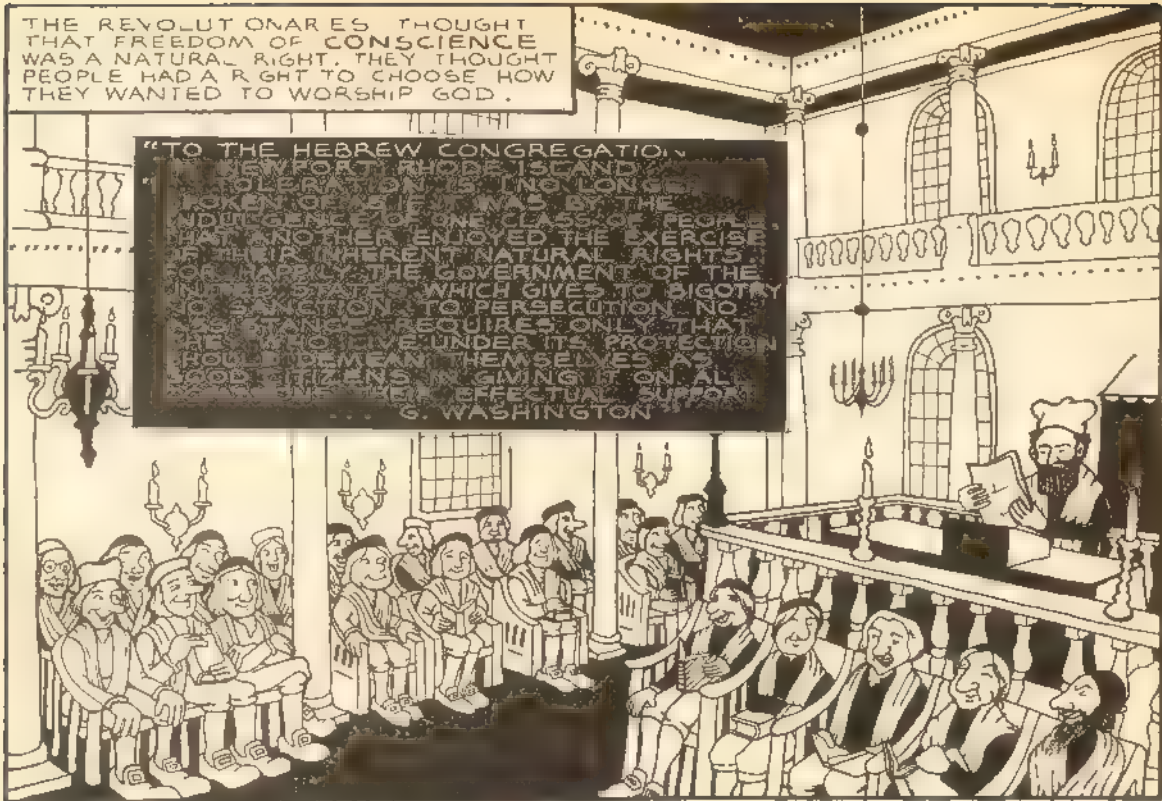 THE REVOLUT ONAR ES THOUGHT
THAT FREEDOM OF CONSCIENCE
WAS A NATURAL RIGHT. THEY THOUGHT
PEOPLE HAD A R GHT TO CHOOSE HOW
THEY WANTED TO WORSHIP GOD.
"TO THE HEBREW CONGREGATION
NEWPORT RHODE ISLAND
TOLERATION IS NO LONGER
SPOKEN OF AS IF IT WAS BY THE
INDULGENCE OF ONE CLASS OF PEOPLE
THAT ANOTHER ENJOYED THE EXERCISE
OF THEIR INHERENT NATURAL RIGHTS
FOR HAPPILY THE GOVERNMENT OF THE
UNITED STATES WHICH GIVES TO BIGOTRY
NO SANCTION, TO PERSECUTION NO
ASSISTANCE REQUIRES ONLY THAT
THEY WHO LIVE UNDER ITS PROTECTION
SHOULD DEMEAN THEMSELVES AS
GOOD CITIZENS IN GIVING IT ON AL
EFFECTUAL SUPPORT
G. WASHINGTON